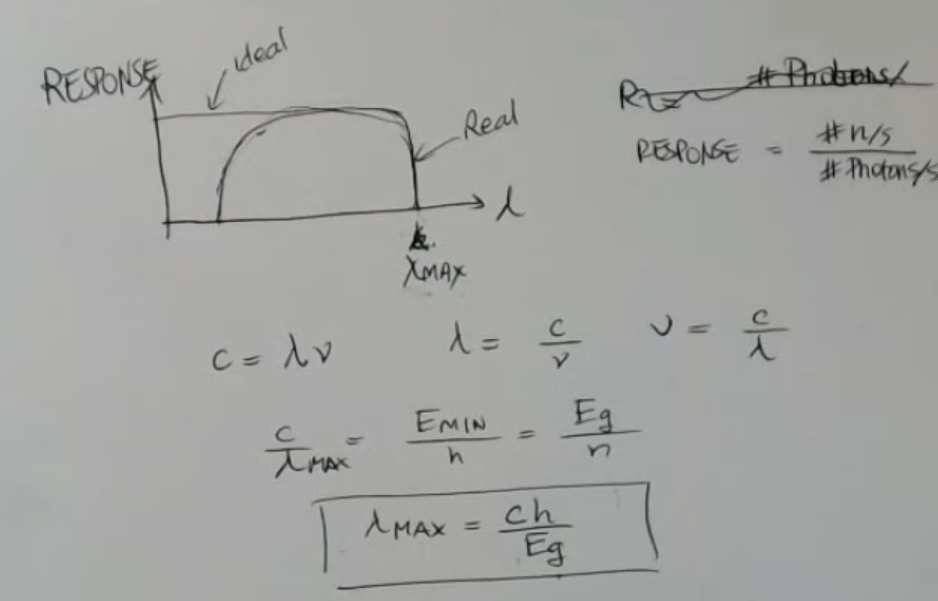 ideal
RESPONSE
Real
λ
λMAX
# Photons/
RESPONSE = #n/s / #Photons/s
c = λν λ = c/ν ν = c/λ
c/λMAX = EMIN/h = Eg/h
λMAX = ch/Eg